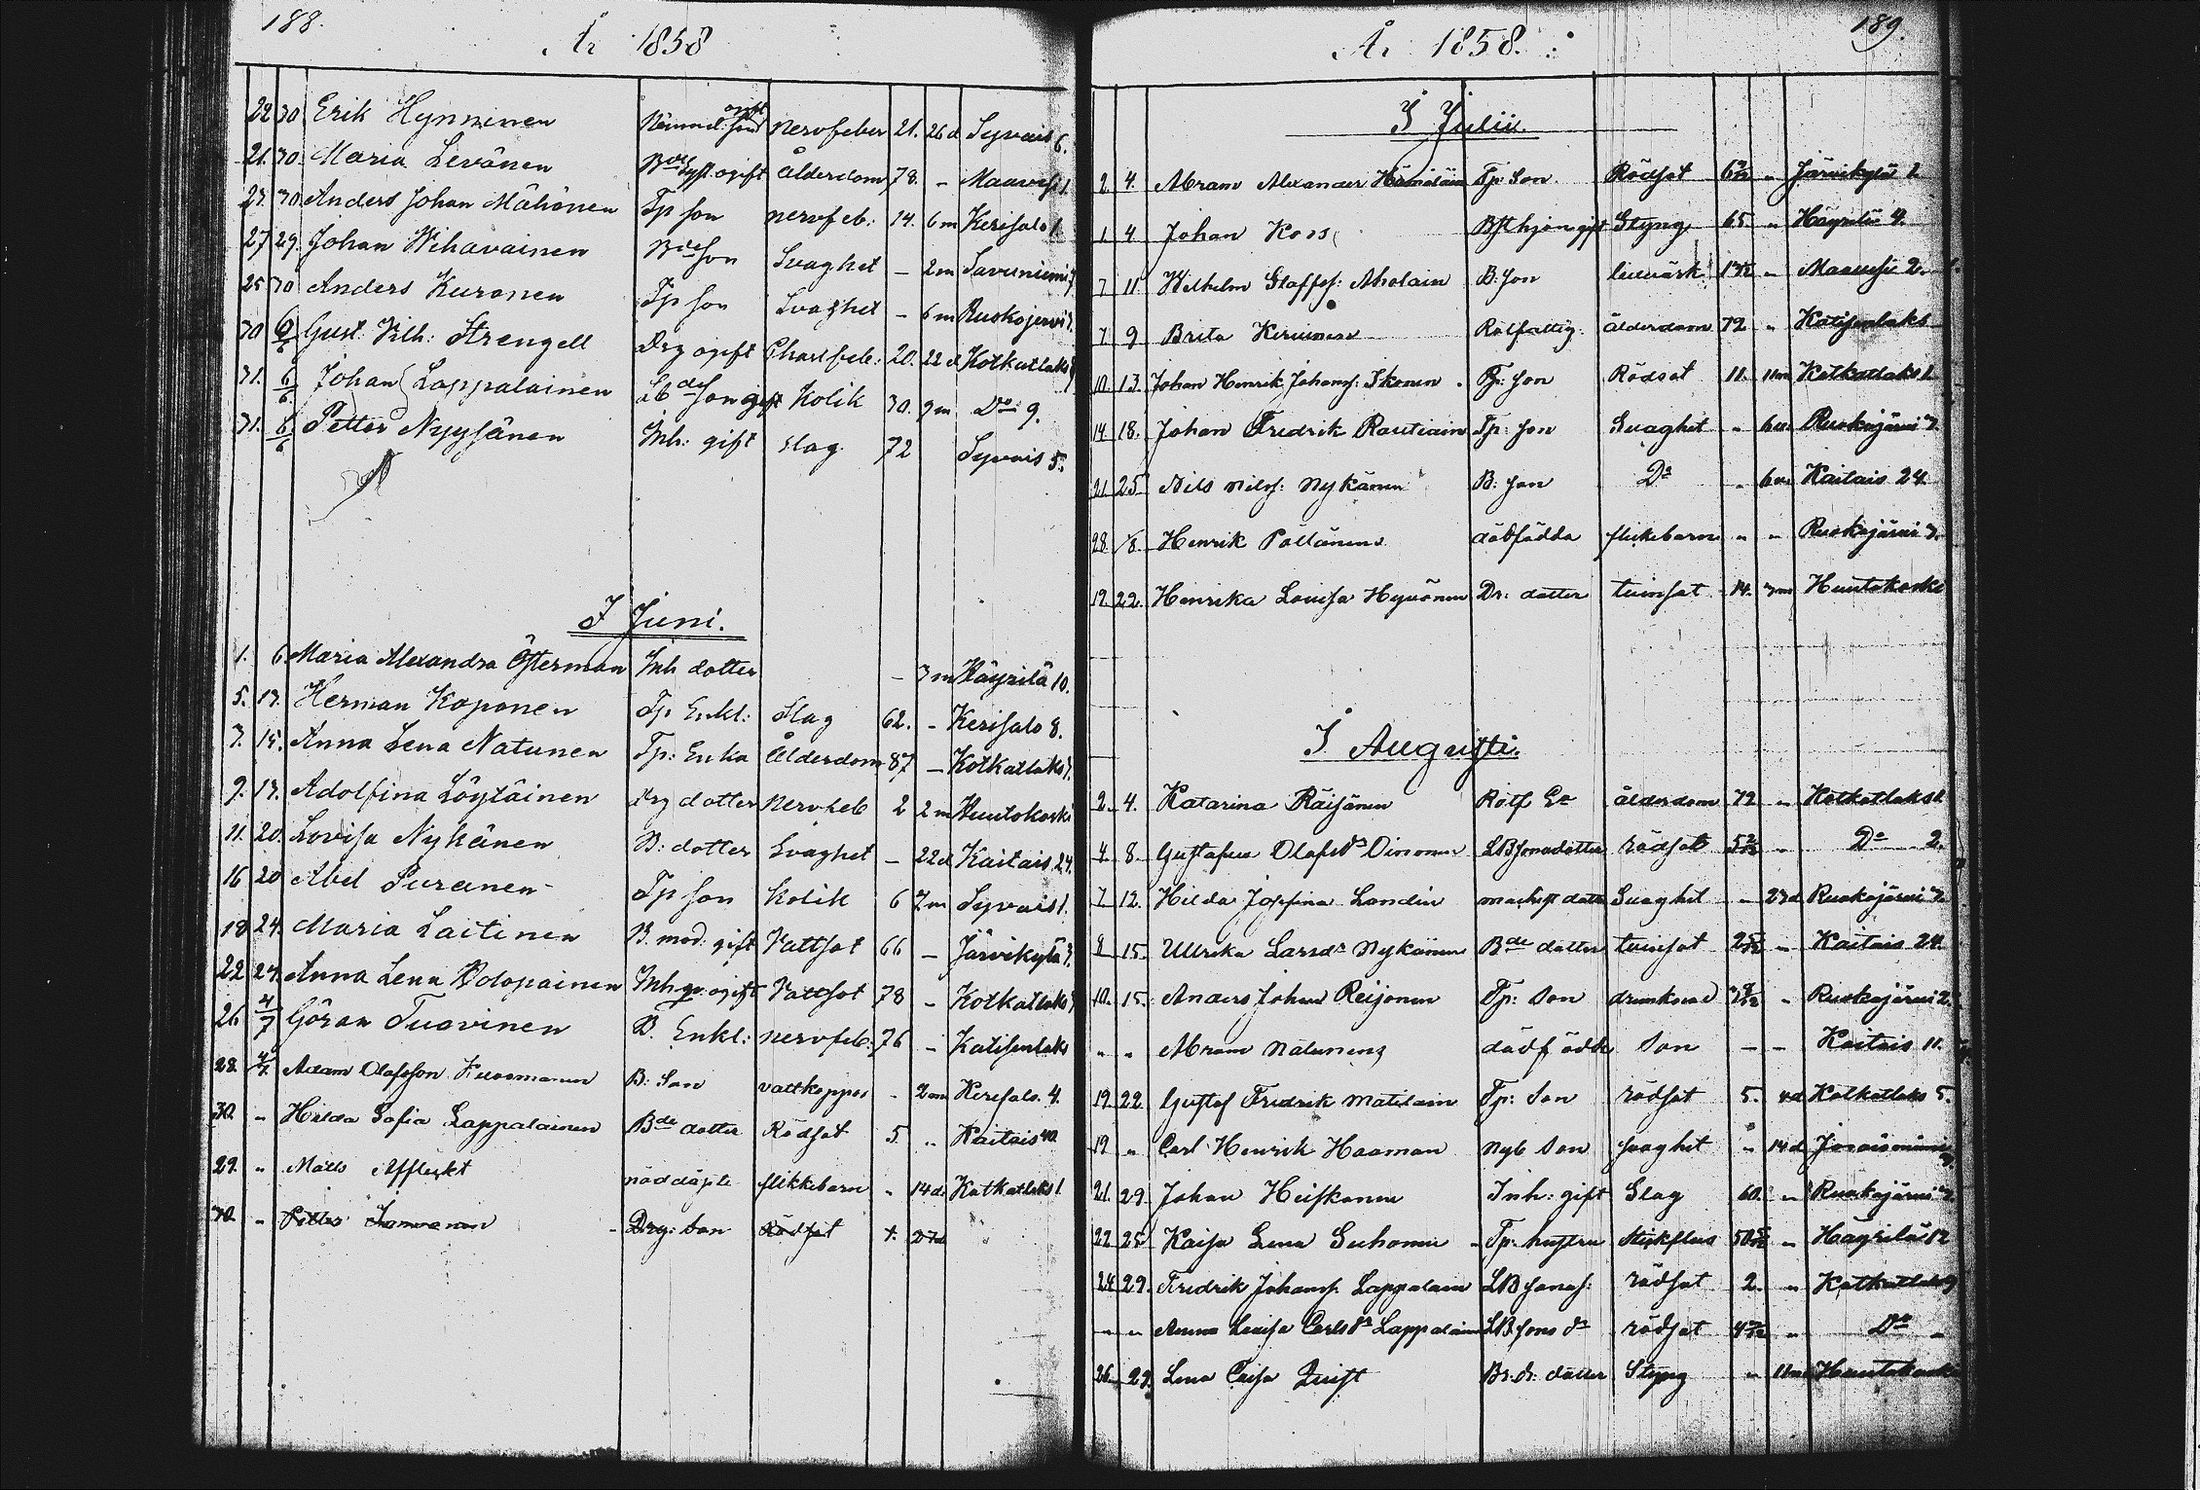 188.
År 1858
29 30 Erik Hynninen ogift nervfeber 21. 26 d Syvais 6.
21. 30. Maria Levänen Bde ogift Ålderdom 78. - Maaves 1.
30. Anders Johan Mähönen Tp son nervfeb: 14. 6 m Kerisalo 1
27 29. Johan Wihavainen Bde son Svaghet - 2 m Savuniemi
25 30 Anders Kuronen Tp son Svaghet - 6 m Ruskojervi
30 6/6 Gust. Vilh: Strengell Drg ogift feb: 20. 22 d Kotkatlaks
31. 6/6 Johan Lappalainen Lbde son gift Kolik 30. 9 m Do 9.
31. 6/6 Petter Nyysänen Inh: gift slag 72 Syvais 5.
I Juni.
1. 6 Maria Alexandra Österman Inh dotter - 3 m Häyrilä 10.
5. 13. Herman Koponen Tp Enkl: Slag 62. - Kerisalo 8.
7. 15. Anna Lena Natunen Tp: Enka Ålderdom 87 - Kotkatlaks
9. 13. Adolfina Löytäinen Drg dotter nervfeb 2 2 m Huutokoski
11. 20. Lovisa Nykänen B: dotter Svaghet - 22 d Kaitais 24.
16 20 Abel Puranen Tp son Kolik 6 7 m Syvais 1.
18 24. Maria Laitinen B. mod: gift Vattsot 66 - Järvikylä
22 24. Anna Lena Polopainen Inh ogift Vattsot 78 - Kotkatlaks
26 4/7 Göran Tuovinen B. Enkl: nervfeb: 76 - Katisenlaks
28. 4/7 Adam Olofsson B: Son vattkoppor - 2 m Kerisalo. 4.
30. " Hilda Sofia Lappalainen Bde dotter Rödsot 5 " Kaitais 40
29. " Matts Affleckt nöddöpte flikkebarn " 14 d Kotkatlaks 1
30. " Petter Drg: Son Rödsot
189.
År 1858.
I Julii.
2. 4. Abram Alexander Hämäläin Tp Son Rödsot " Järvikylä 2
1. 4 Johan Koss gift Styng 65. " Häyrilä 4.
7 11 Wilhelm Staffss: Aholain B: son " Maavesi 2.
7 9 Brita Rotfattig. ålderdom 72 " Katisenlaks
10. 13. Johan Henrik Johanss: Ikonen Tp: son Rödsot 11. 11m Kotkatlaks 1
14 18. Johan Fredrik Rautiain Tp: son Svaghet " 6 m Ruskojärvi
21 25 Nils Nilss: Nykänen B: son Do " 6 m Kaitais 24.
28 1/8. Henrik Pöllänens dödfödda flickebarn " " Ruskojärvi
19. 22. Henrika Lovisa Hyvönen Dr: dotter tvinsot 14. Huutokoski
I Augusti.
2. 4. Katarina Räisänen Rotf ålderdom 72 " Kotkatlaks
4. 8. Gustafva Olofsdr LBsonadotter rödsot " Do 2.
7 12. Hilda Josefina Landin dotter Svaghet - 23 d Ruskojärvi
8 15. Ullrika Larsdr Nykänen Bde dotter tvinsot " Kaitais 24.
10. 15. Anders Johan Reijonen Tp: Son drunknad " Ruskojärvi 2.
" " Abram Natunens dödfödde Son - - Kaitais 11.
19. 22 Gustaf Fredrik Matilain Tp: Son rödsot 5. 4 d Kotkatlaks 5.
19 " Carl Henrik Haaman Nyb Son svaghet " 14 d
21. 29. Johan Heiskanen Inh: gift Slag 60. " Ruskojärvi
22 25 Kaisa Lena Suhonen Tp: hustru Stickfluss " Häyrilä 12
24 29. Fredrik Johanss: Lappalain LBsons: rödsot 2. " Kotkatlaks 9
" " Anna Lovisa Carlsdr Lappalain LBsons dr rödsot " Do "
26. 29. Lena Caisa Quist dotter Styng " 11m Huutokoski